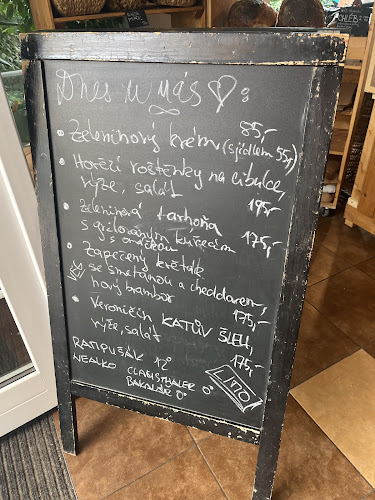 Dnes u nás
• Zeleninový krém 85,-
(s jídlem 55,-)
• Hovězí roštěnky na cibulce,
rýže, salát 195,-
• Zeleninová tarhoňa
s grilovaným kuřecím 175,-
s omáčkou
• Zapečený květák
se smetanou a cheddarem,
nový brambor 175,-
• Veroničin KATŮV ŠLEH,
rýže, salát 175,-
RATIPUŠÁK 12°
NEALKO CLAUSTHALER 0°
BAKALÁŘ 0°
CHLÉB